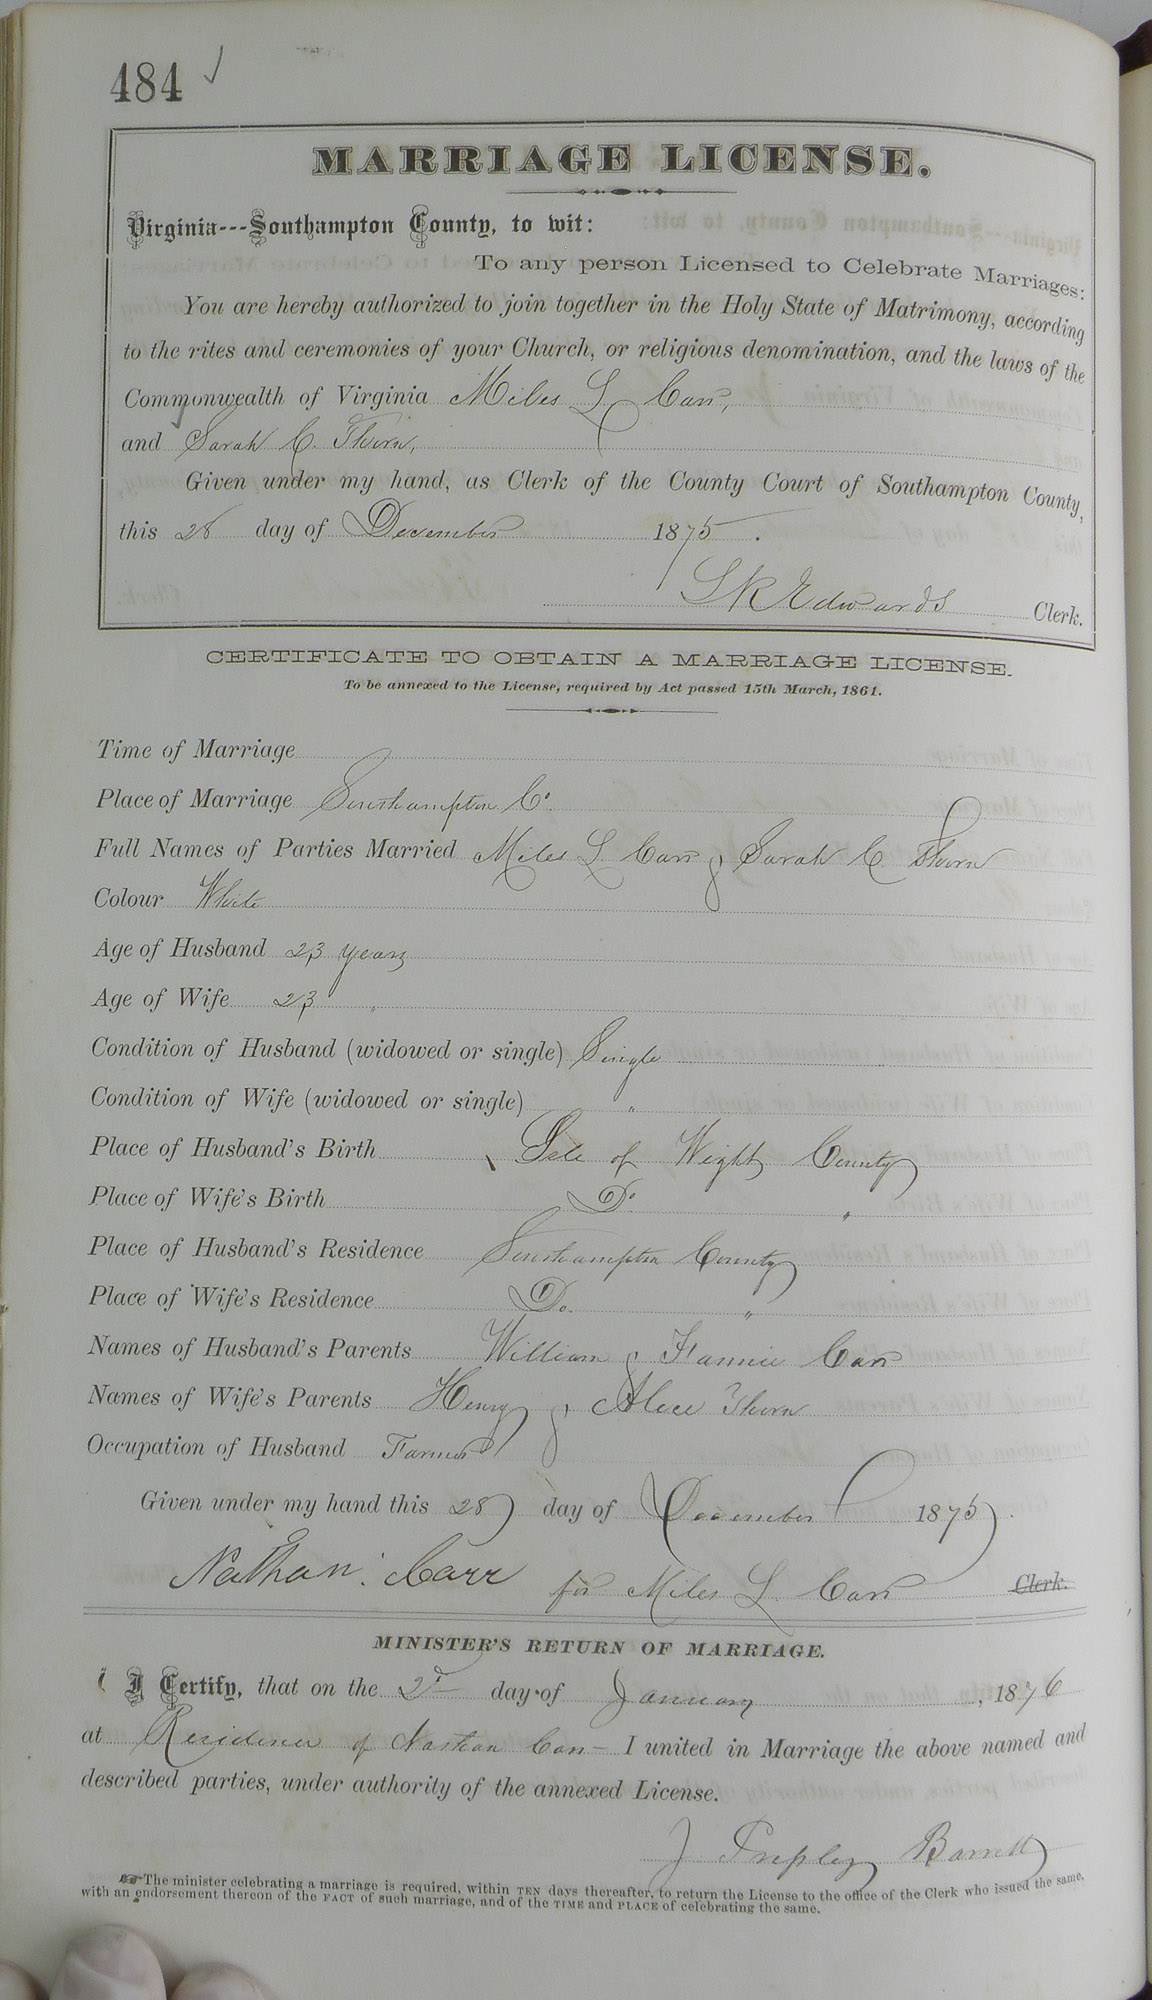 484 ✓
MARRIAGE LICENSE.
Virginia---Southampton County, to wit:
To any person Licensed to Celebrate Marriages:
You are hereby authorized to join together in the Holy State of Matrimony, according
to the rites and ceremonies of your Church, or religious denomination, and the laws of the
Commonwealth of Virginia Miles L Carr,
and Sarah C. Thorn,
Given under my hand, as Clerk of the County Court of Southampton County,
this 28 day of December 1875.
L R Edwards Clerk.
CERTIFICATE TO OBTAIN A MARRIAGE LICENSE.
To be annexed to the License, required by Act passed 15th March, 1861.
Time of Marriage
Place of Marriage Southampton Co.
Full Names of Parties Married Miles L. Carr & Sarah C. Thorn
Colour White
Age of Husband 23 years
Age of Wife 23 "
Condition of Husband (widowed or single) Single
Condition of Wife (widowed or single) "
Place of Husband's Birth Isle of Wight County
Place of Wife's Birth Do. "
Place of Husband's Residence Southampton County
Place of Wife's Residence Do. "
Names of Husband's Parents William & Fannie Carr
Names of Wife's Parents Henry & Alice Thorn
Occupation of Husband Farmer
Given under my hand this 28 day of December 1875.
Nathan. Carr for Miles L Carr Clerk.
MINISTER'S RETURN OF MARRIAGE.
I Certify, that on the 2d day of January, 1876
at Residence of Nathan Carr — I united in Marriage the above named and
described parties, under authority of the annexed License.
J Barrett
The minister celebrating a marriage is required, within TEN days thereafter, to return the License to the office of the Clerk who issued the same,
with an endorsement thereon of the FACT of such marriage, and of the TIME and PLACE of celebrating the same.